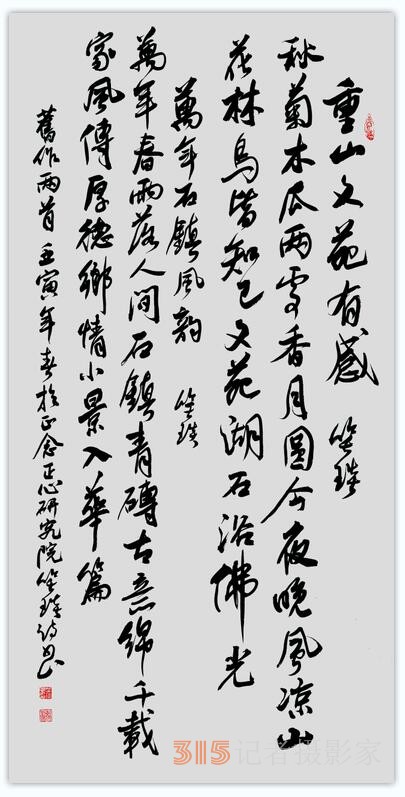 重山文苑有感 笙
秋菊木瓜两香月圆今夜晚風凉山
花林鸟皆知己文苑湖石浴佛光
萬年石鎮風韵 笙
萬年春雨落人间石鎮青磚古意绵千載
家風傳厚德鄉情小景入華篇
舊作兩首 壬寅年春於正念正心研究院笙诗书
315记者摄影家